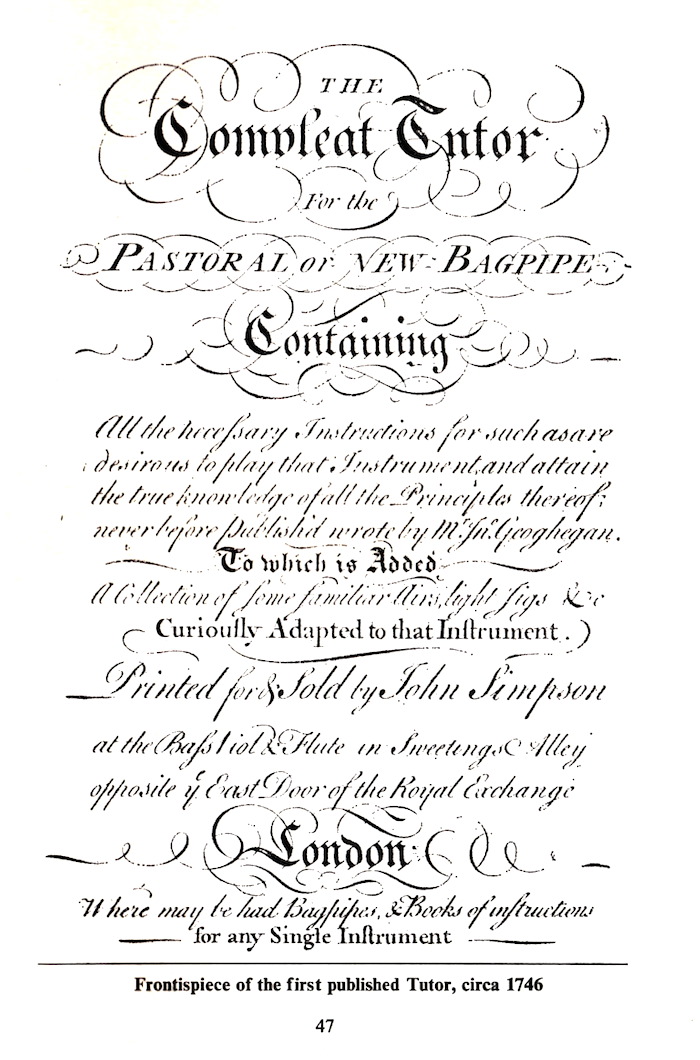 THE
Compleat Tutor
For the
PASTORAL or NEW BAGPIPE
Containing
All the neceſsary Instructions for such as are
desirous to play that Instrument, and attain
the true knowledge of all the Principles thereof;
never before publish'd wrote by Mr. Jno. Geoghegan.
To which is Added
A Collection of some familiar Airs, light Jigs &c
Curiouſly Adapted to that Inſtrument.
Printed for & Sold by John Simpson
at the Baſs Viol & Flute in Sweetings Alley
opposite ye East Door of the Royal Exchange
London
Where may be had Bagpipes, & Books of inſtructions
for any Single Inſtrument
Frontispiece of the first published Tutor, circa 1746
47